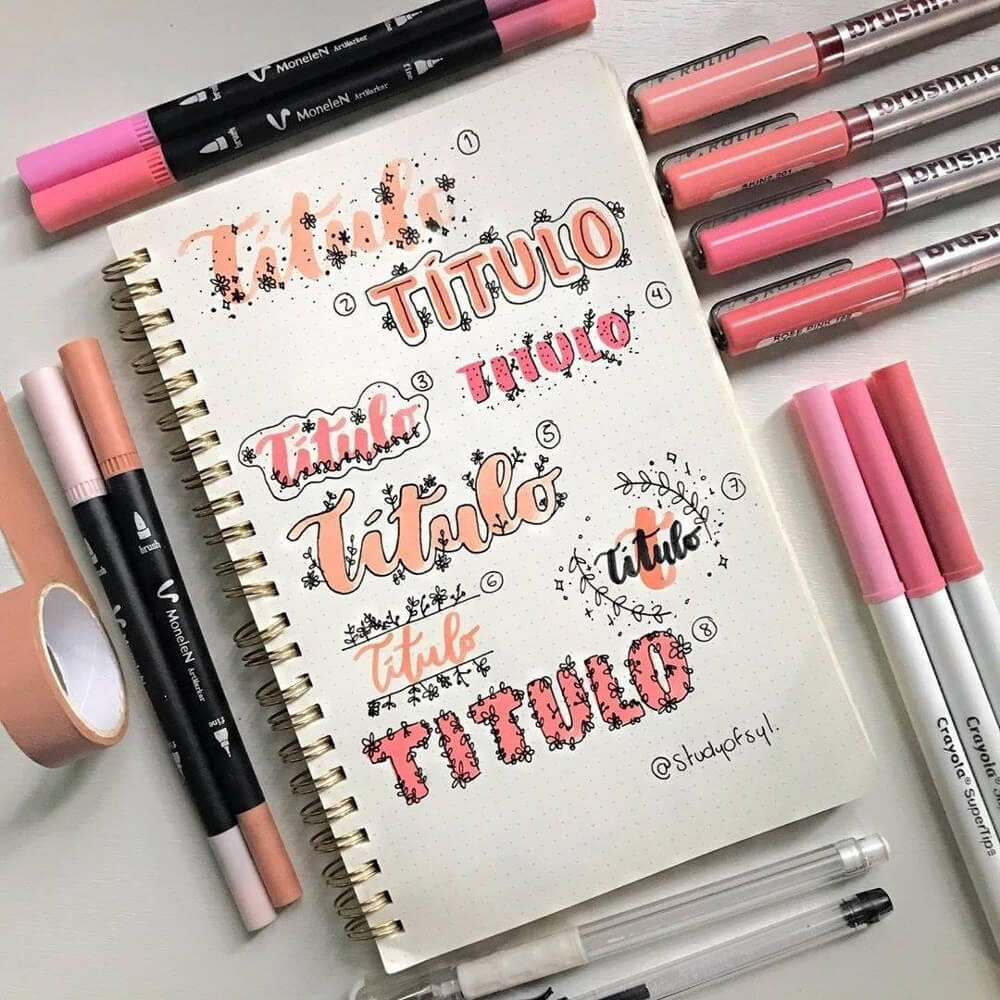 MoneleN ArtMarker
brush
MoneleN ArtMarker
fine
brushma
brushma
brushma
brushm
ROSE PINK
1
Título
2
TÍTULO
4
TITULO
3
Título
5
Título
7
t
Título
6
Título
8
TITULO
@studyofsyl.
brush
MoneleN
ArtMarker
fine
Crayola® SuperTips
Crayola® S